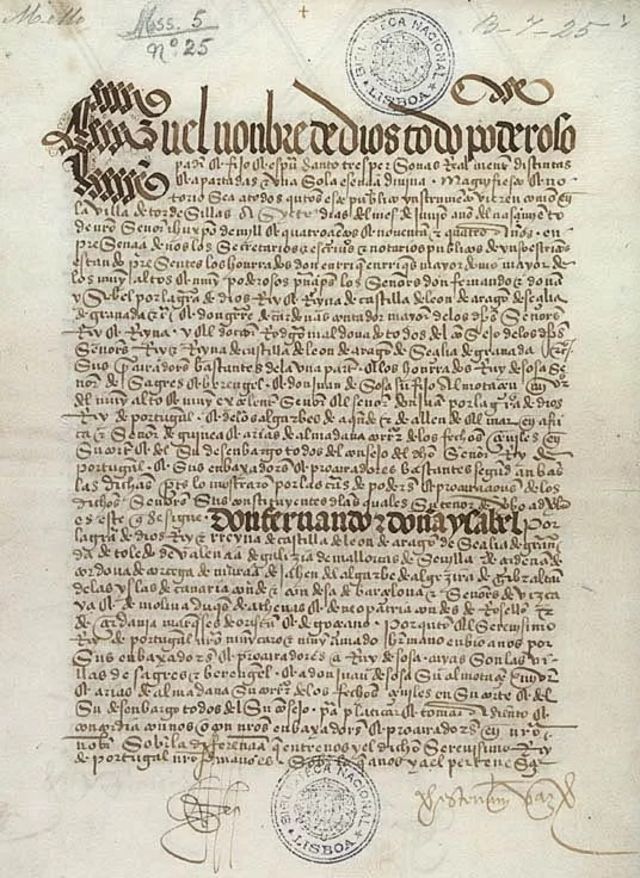 Mss. 5
Nº 25
B-7-25
BIBLIOTECA NACIONAL LISBOA
En el nonbre de dios todo poderoso
padre & fijo & espu santo tres personas realmente distintas
& apartadas & una sola esencia divina. Magnifiesto & no
torio sea a todos quantos este publico ynstrumento vieren como en
la villa de tordesillas a syete dias del mes de junio año del nasçimiento
de nro señor ihu xpo de mill & quatroçientos & noventa & quatro años. en
presençia de nos los secretarios & escrivanos & notarios publicos de yuso escriptos
estando presentes los honrrados don enrrique enrriques mayordomo mayor de
los muy altos & muy poderosos prinçipes los señores don fernando & doña
ysabel por la graçia de dios Rey & Reyna de castilla de leon de aragon de seçilia
de granada & & don gutierre de cardenas contador mayor de los dichos señores
Rey & Reyna. y el doctor Rodrigo maldonado todos del consejo de los dichos
señores Rey & Reyna de castilla de leon de aragon de seçilia de granada
sus procuradores bastantes de la una parte. & los honrrados Ruy de sosa se
ñor de sagres & berengel & don juan de sosa su fijo almotaçen mayor
del muy alto & muy exçelente señor el señor don juan por la graçia de dios
Rey de portugal & de los algarbes de aquende & de allende el mar en afri
ca & señor de guinea & arias de almadana corregidor de los fechos çeviles en
su corte & del su desenbargo todos del consejo del dicho señor Rey de
portugal & sus enbaxadores & procuradores bastantes segund anbas
las dichas partes lo mostraron por las cartas de poderes & procuraçiones de los
dichos señores sus constituyentes de las quales su tenor de verbo ad verbo
es este que se sigue. Don fernando & doña ysabel por
la graçia de dios Rey & Reyna de castilla de leon de aragon de seçilia de grana
da de toledo de valençia de galizia de mallorcas de sevilla de çerdeña de
cordova de corçega de murçia de jahen del algarbe de algezira de gibraltar
de las yslas de canaria conde & condesa de barçelona & señores de vizca
ya & de molina duques de athenas & de neopatria condes de Rosellon &
de çerdania marqueses de oristan & de goçiano. por quanto el serenisimo
Rey de portugal nro muy caro & muy amado hermano enbio a nos por
sus enbaxadores & procuradores a Ruy de sosa cuyas son las vi
llas de sagres & berengel & a don juan de sosa su almotaçen mayor
& arias de almadana su corregidor de los fechos çeviles en su corte & del
su desenbargo todos del su consejo. para platicar & tomar asiento &
concordia con nos o con nros enbaxadores & procuradores en nro
nonbre sobre la diferençia que entre nos y el dicho serenisimo Rey
de portugal nro hermano es sobre lo que a nos y a el perteneçe
BIBLIOTECA NACIONAL LISBOA